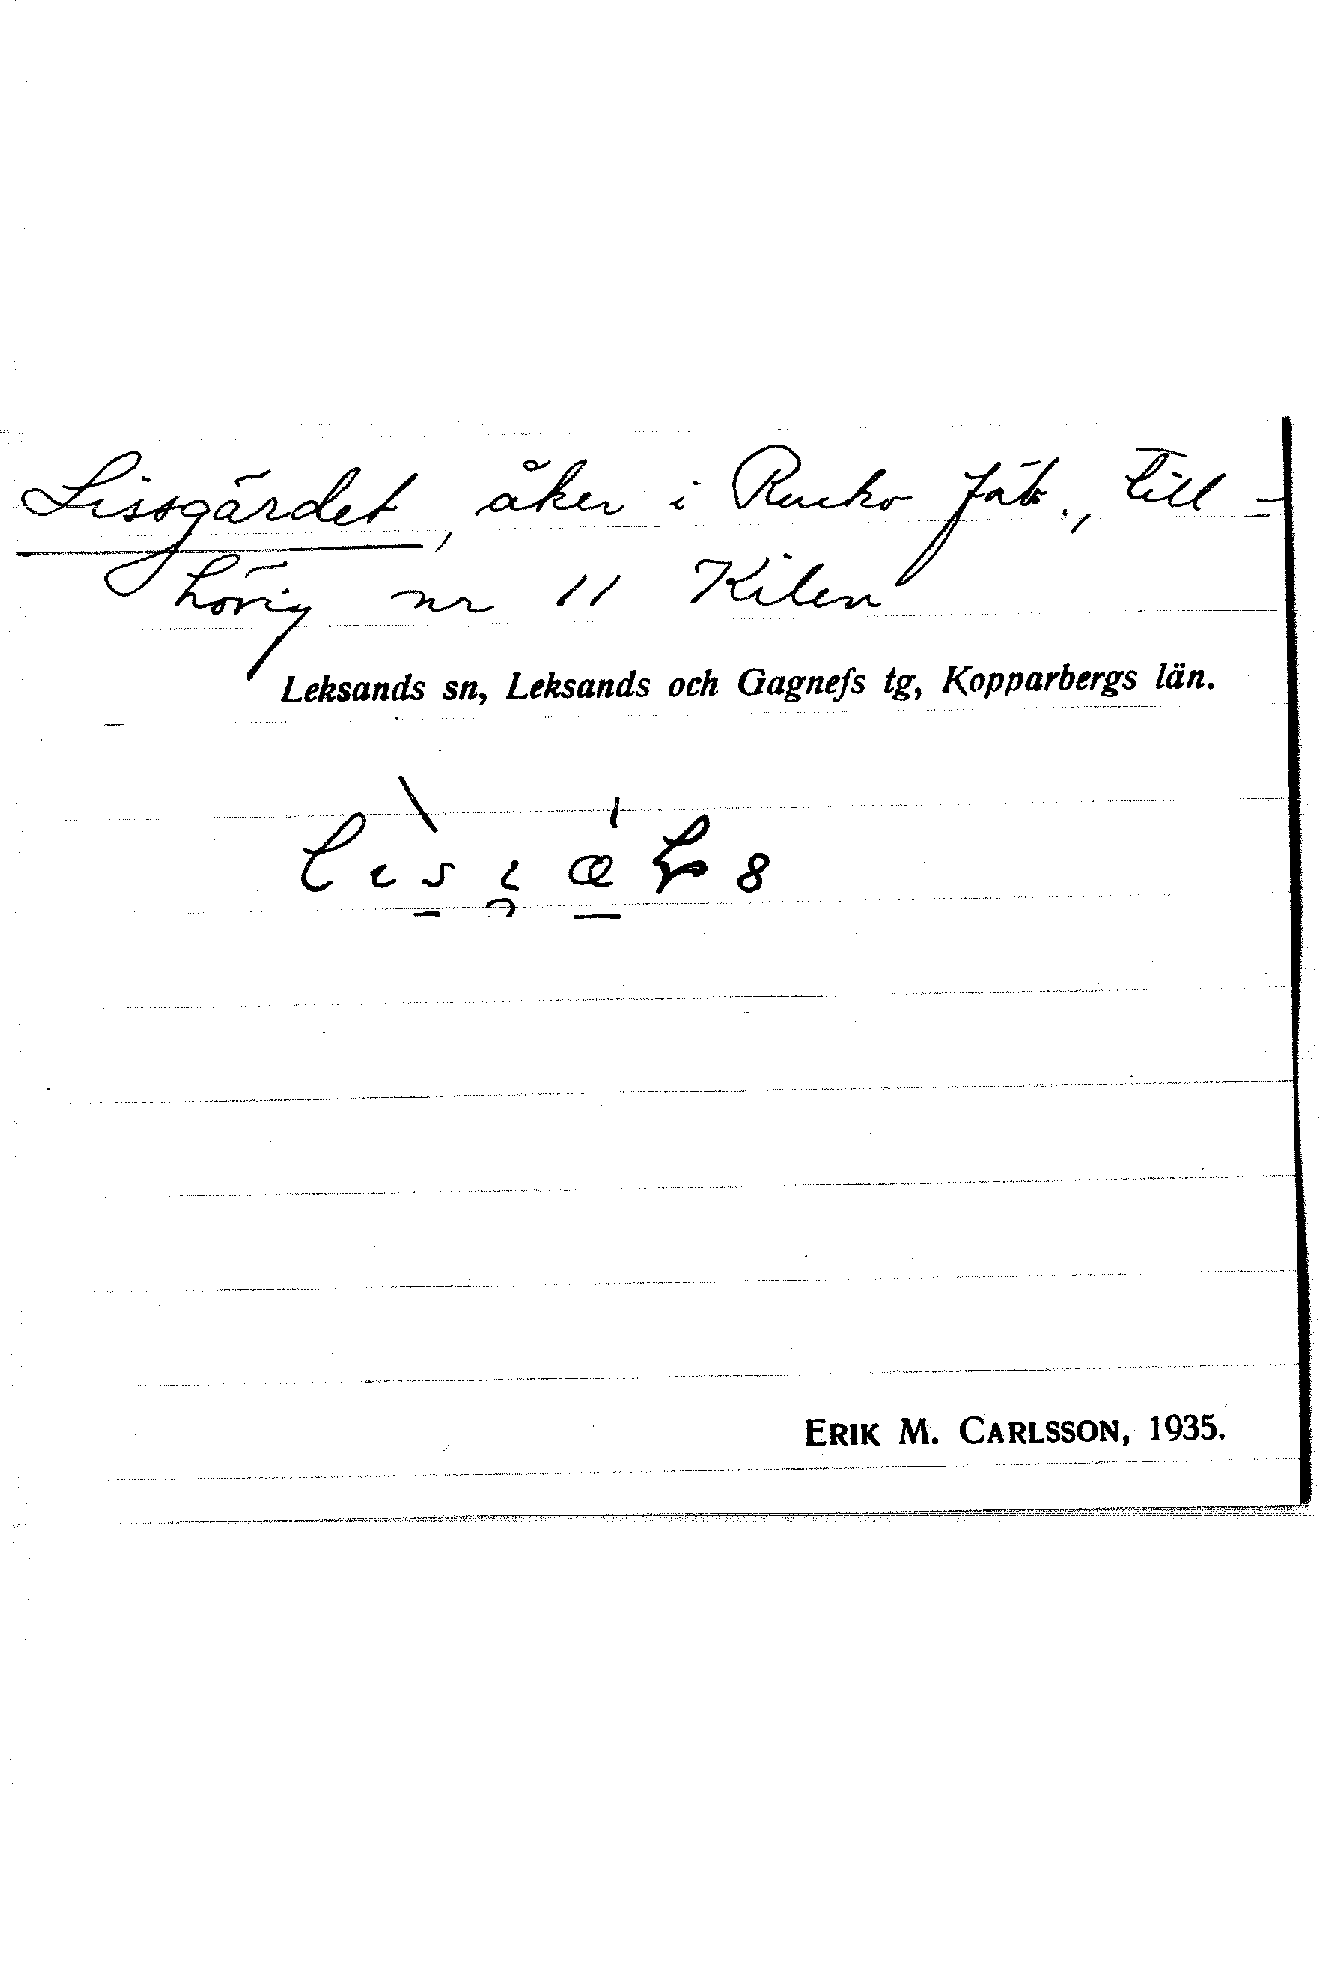 Lissgärdet, åker i Rucko fäb., till-
hörig nr 11 Kilen
Leksands sn, Leksands och Gagnefs tg, Kopparbergs län.
ERIK M. CARLSSON, 1935.